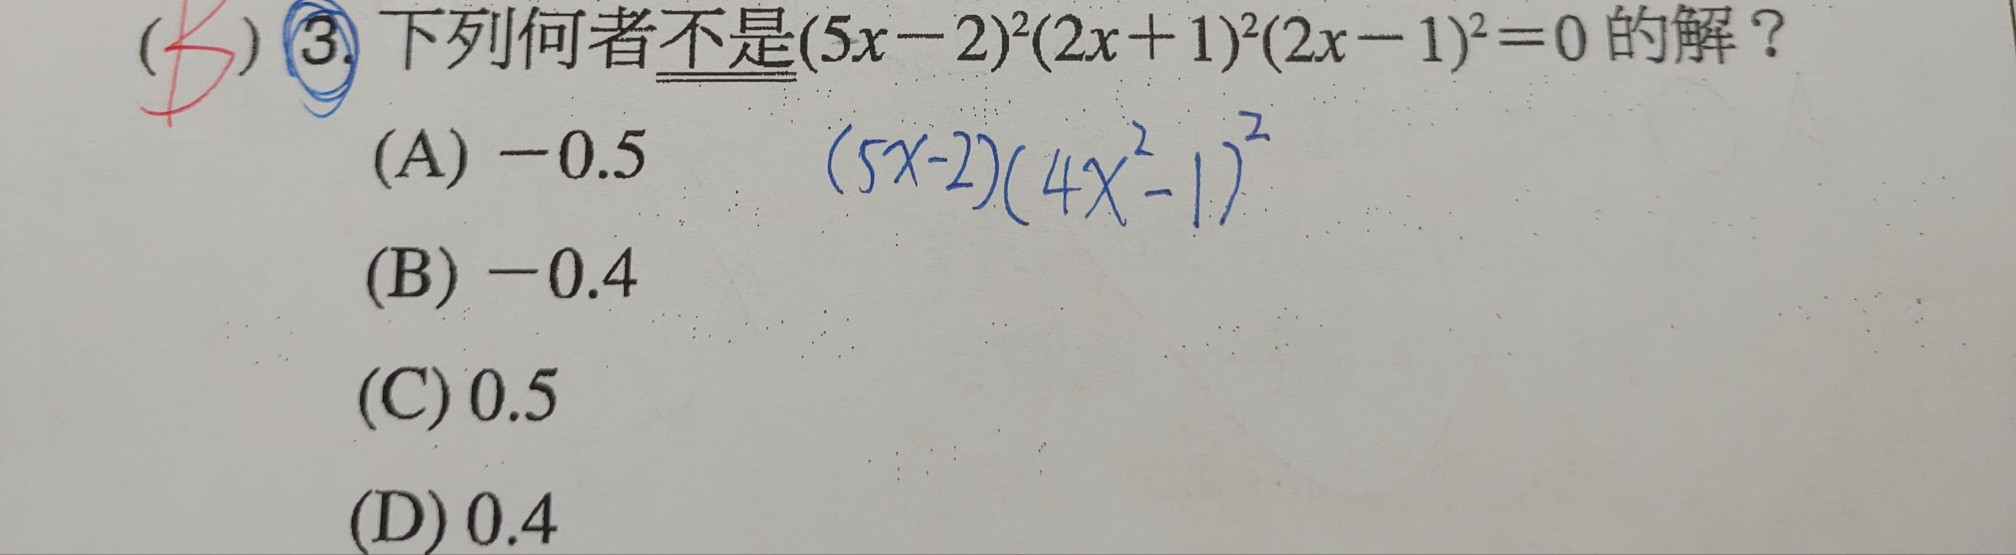 (B) 3. 下列何者不是(5x－2)²(2x＋1)²(2x－1)²＝0 的解？
(A) －0.5
(5x-2)(4x²-1)²
(B) －0.4
(C) 0.5
(D) 0.4